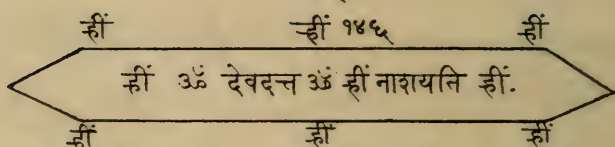 ह्रीं ह्रीं १४६ ह्रीं
ह्रीं ॐ देवदत्त ॐ ह्रीं नारायति ह्रीं.
ह्रीं ह्रीं ह्रीं